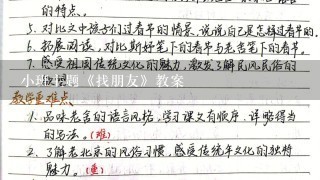 的特点。
5. 对比文中孩子们过春节的情景,说说自己是怎样过春节的。
6. 拓展阅读,对比斯妤笔下的春节与老舍笔下的春节。
7. 感受祖国传统文化的魅力,激发了解民风民俗的
小班主题《找朋友》教案
教学重难点、
1. 品味老舍的语言风格,学习课文有顺序、详略得当
的写法。(难)
2. 了解老北京的风俗习惯,感受传统年文化的独特
魅力。(重)